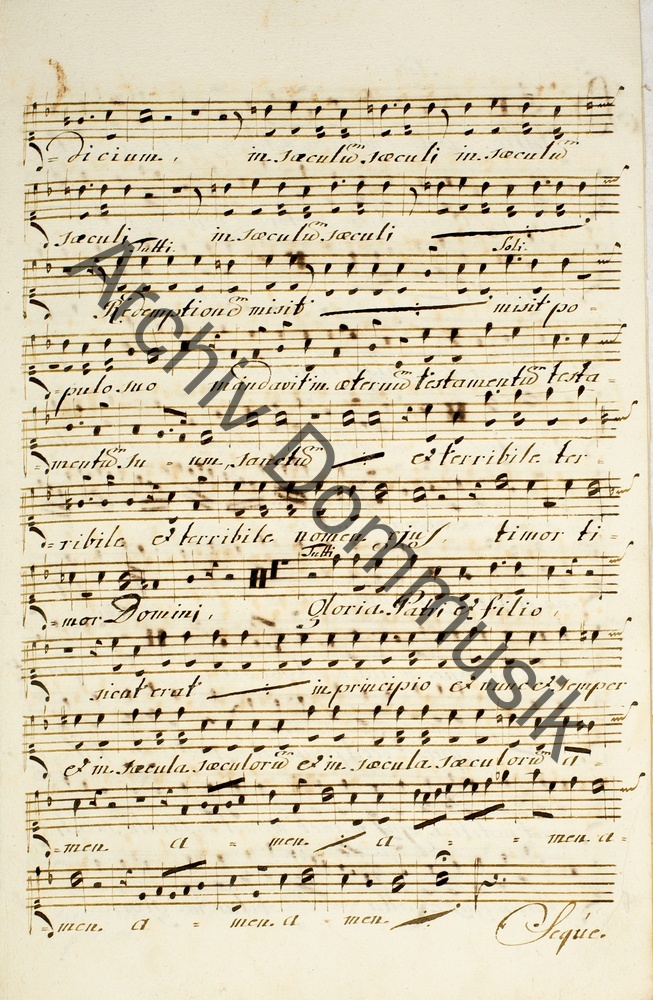 = dicium, in sæculũ sæculi in sæculũ
sæculi in sæculũ sæculi
Tutti. Soli.
Redemptionẽ misit misit po =
= pulo suo mandavit in æternũ testamentũ testa =
= mentũ su = um, sanctũ et terribile ter =
= ribile et terribile nomen ejus, timor ti =
Tutti
= mor Domini, Gloria Patri et filio,
sicut erat in principio et nunc et semper
et in sæcula sæculorũ et in sæcula sæculorũ a =
= men a = men a = = men. a =
men. a = men. a men.
Seque.
Archiv Dommusik